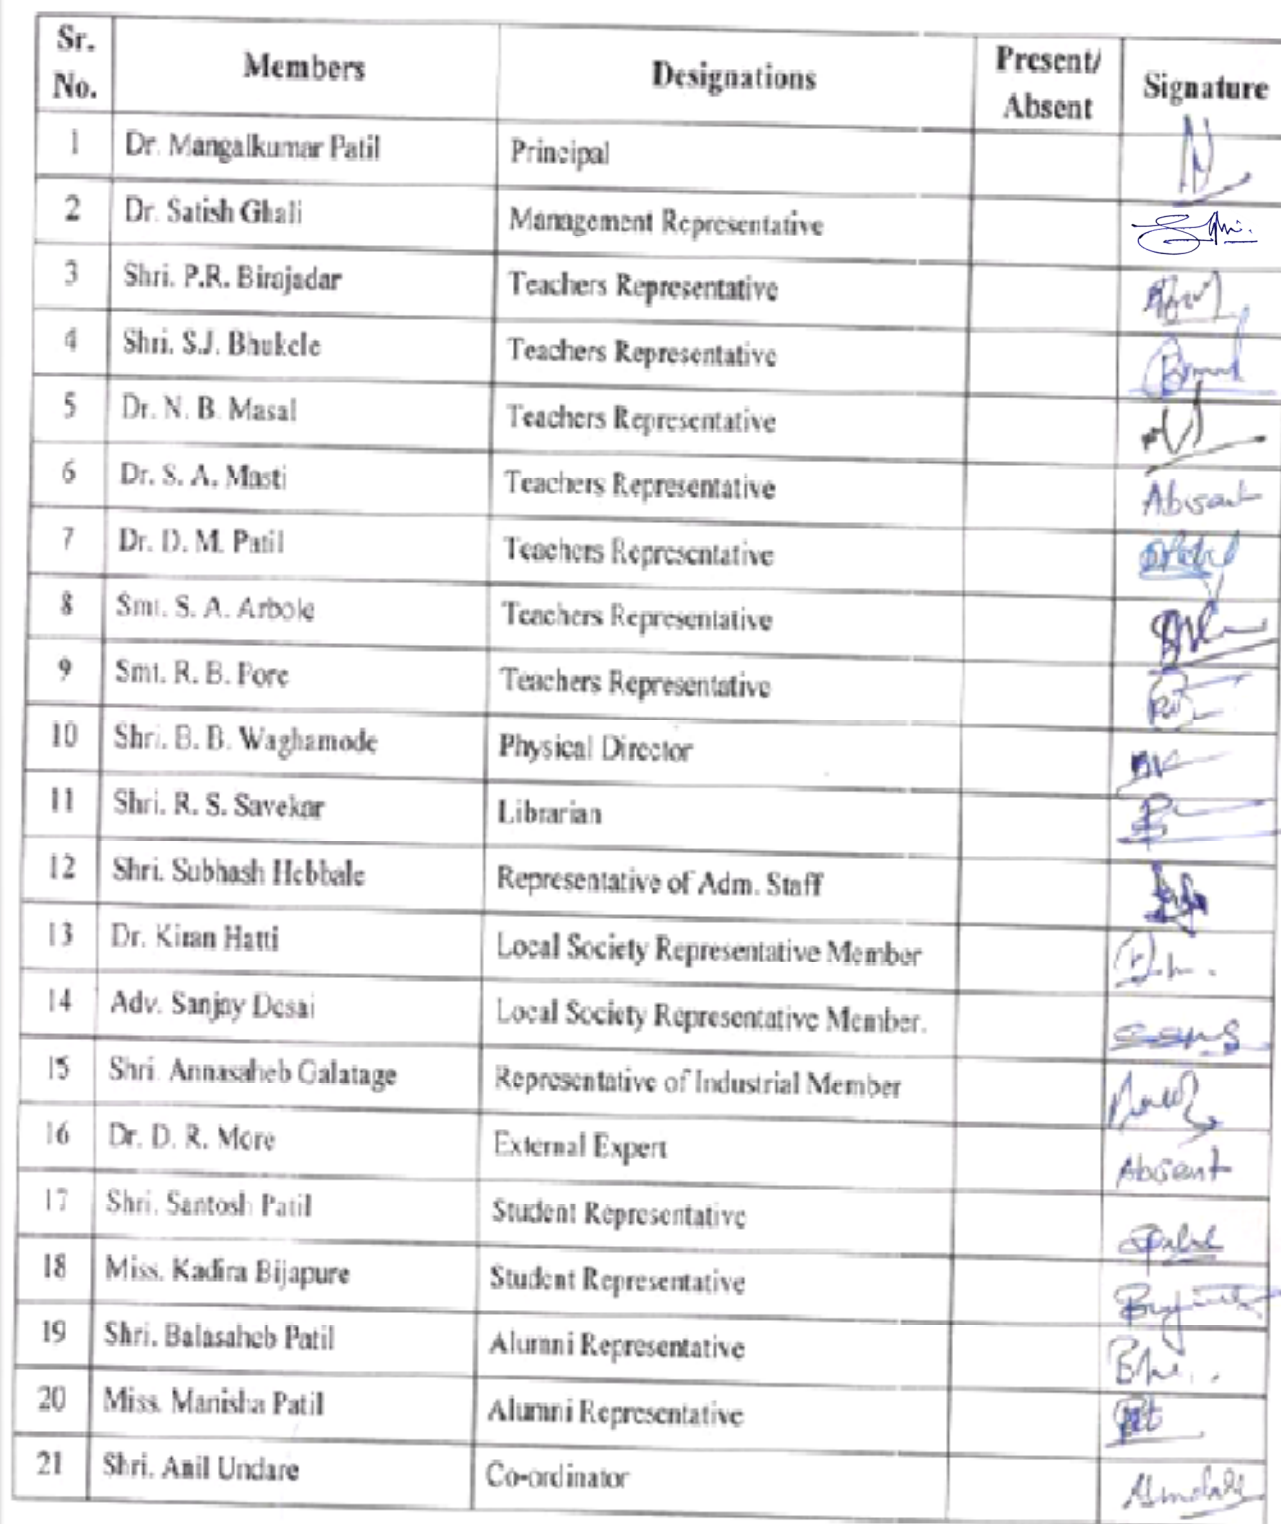 Sr. No. Members Designations Present/ Absent Signature
1 Dr. Mangalkumar Patil Principal
2 Dr. Satish Ghali Management Representative
3 Shri. P.R. Birajadar Teachers Representative
4 Shri. S.J. Bhukele Teachers Representative
5 Dr. N. B. Masal Teachers Representative
6 Dr. S. A. Masti Teachers Representative Absent
7 Dr. D. M. Patil Teachers Representative
8 Smt. S. A. Arbole Teachers Representative
9 Smt. R. B. Pore Teachers Representative
10 Shri. B. B. Waghamode Physical Director
11 Shri. R. S. Savekar Librarian
12 Shri. Subhash Hebbale Representative of Adm. Staff
13 Dr. Kiran Hatti Local Society Representative Member
14 Adv. Sanjay Desai Local Society Representative Member.
15 Shri. Annasaheb Galatage Representative of Industrial Member
16 Dr. D. R. More External Expert Absent
17 Shri. Santosh Patil Student Representative
18 Miss. Kadira Bijapure Student Representative
19 Shri. Balasaheb Patil Alumni Representative
20 Miss. Manisha Patil Alumni Representative
21 Shri. Anil Undare Co-ordinator